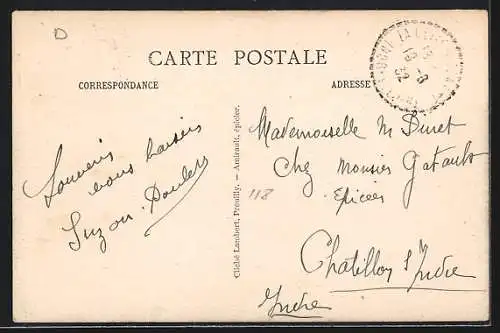 D
CARTE POSTALE
CORRESPONDANCE
ADRESSE
Souvenirs
bons baisers
Suzon
Cliché Lambert, Preuilly. — Amirault, épicier.
118
Mademoiselle M Binet
Chez Monsieur Gatault
Epicier
Chatillon s/ Indre
Indre